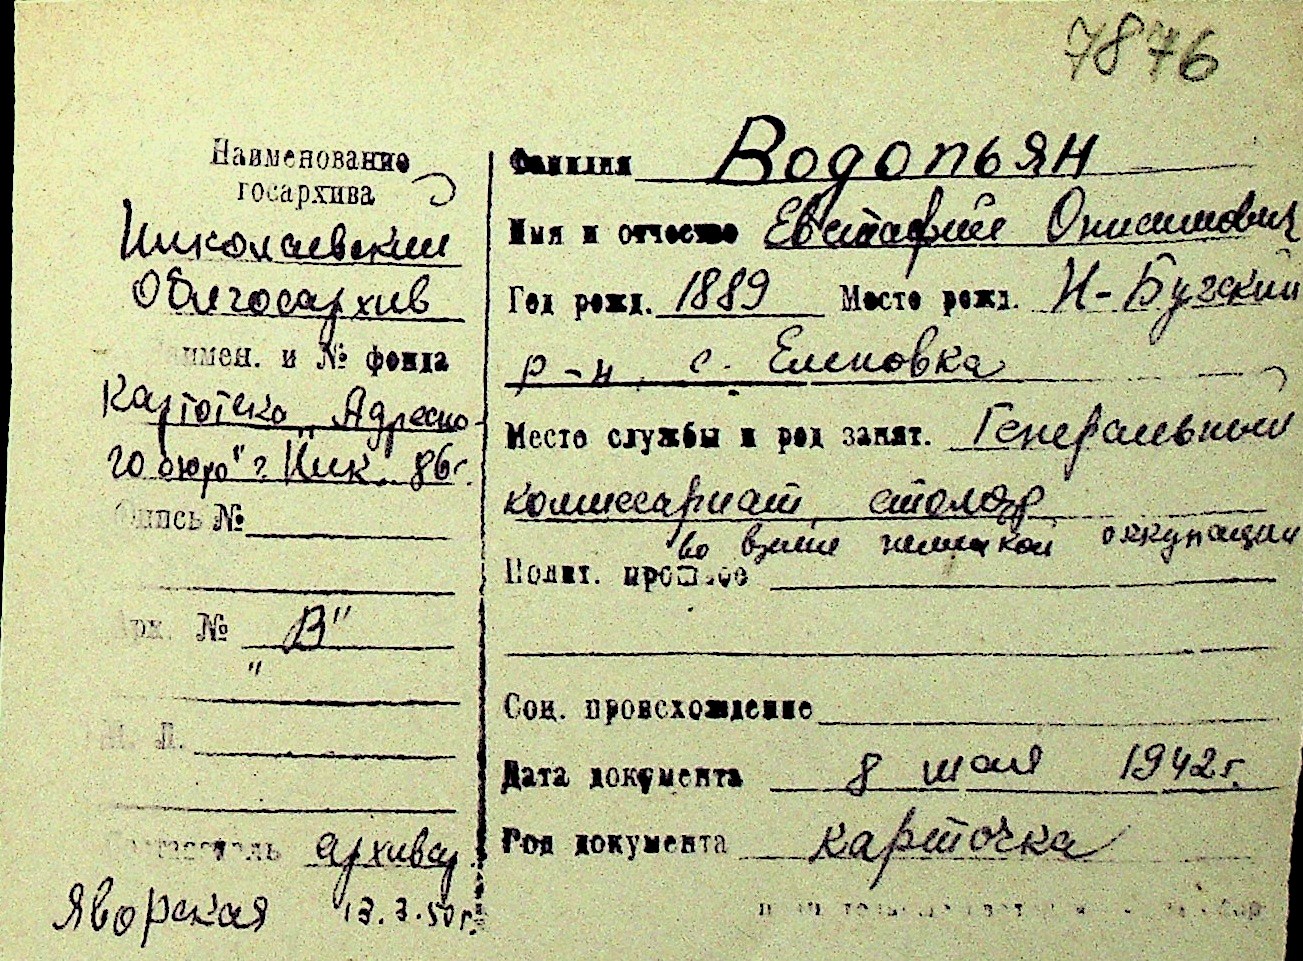 7876
Наименование
госархива
Николаевский
Облгосархив
Наимен. и № фонда
Картотека „Адресно-
го бюро" г. Ник. 86г.
Опись №
Арх. № „В"
Л.
Составитель архивар.
Яворская 13.3.50г.
Фамилия Водопьян
Имя и отчество Евстафий Онисимович
Год рожд. 1889 Место рожд. Н-Бугский
р-н, с. Еленовка
Место службы и род занят. Генеральный
комиссариат, столяр
во время немецкой оккупации
Полит. прошлое
Соц. происхождение
Дата документа 8 мая 1942г.
Род документа карточка